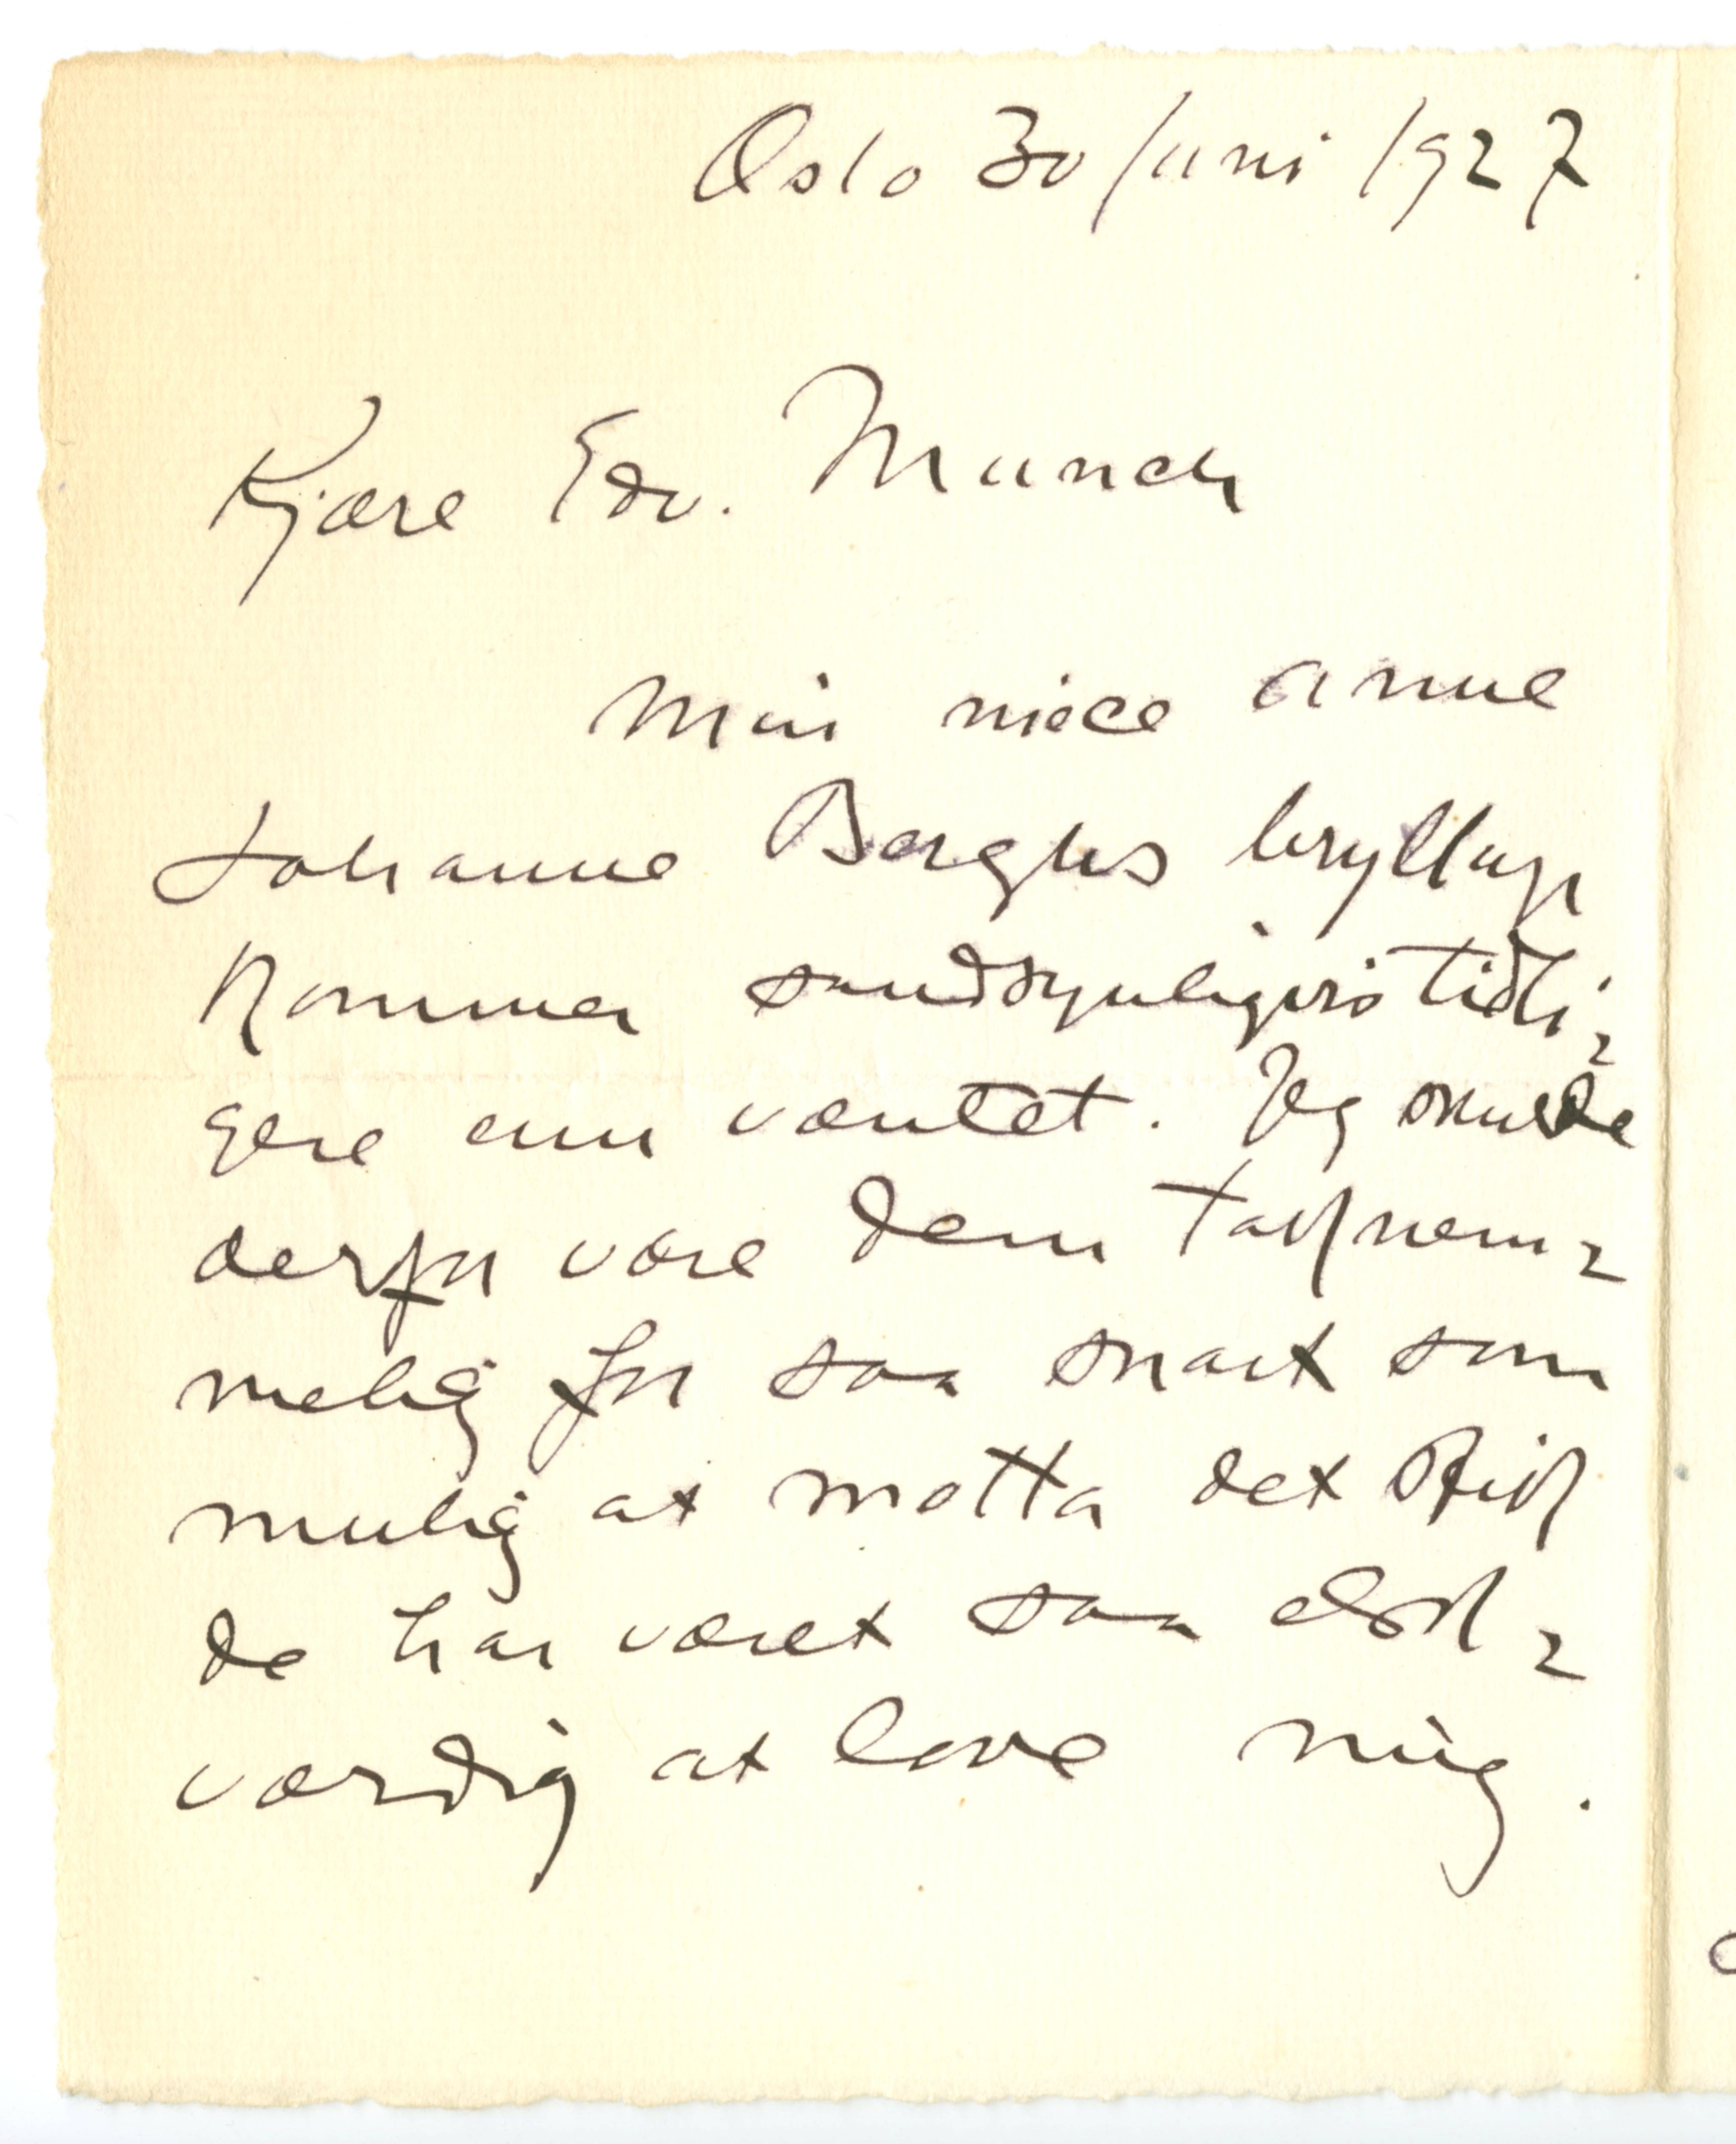 Oslo 30 juni 1927
Kjære Edv. Munch
Min niece Anne
Johanne Berghs bryllup
kommer sandsynligvis tidli-
gere enn ventet. Jeg skulde
derfor være Dem taknem-
melig for saa snart som
mulig at motta det stik
De har været saa elsk-
værdig at love mig.